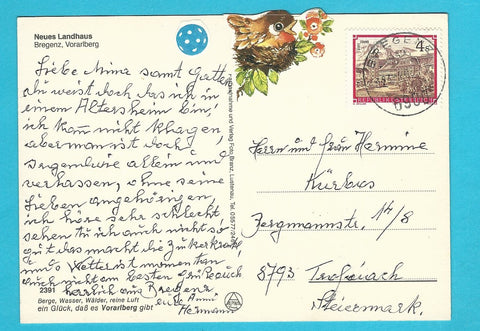 Neues Landhaus
Bregenz, Vorarlberg
Liebe Mina samt Gatten
du weist doch das ich in
einem Altersheim bin,
ich kann nicht klagen,
aber man ist doch
irgendwie allein und
verlassen, ohne seine
Lieben angehörigen,
ich höre sehr schlecht
sehen tu ich auch nicht so
gut das macht die Zukerkrankh
Wetter ist momentan
auch nicht am besten
herzlich aus Bregenz
eure Anni
Hermann
2391
Berge, Wasser, Wälder, reine Luft
ein Glück, daß es Vorarlberg gibt
4
REPUBLIK ÖSTERREICH
Herrn und Frau Hermine
Kürbus
Bergmannstr. 14/8
8793 Trofaiach
Steiermark.